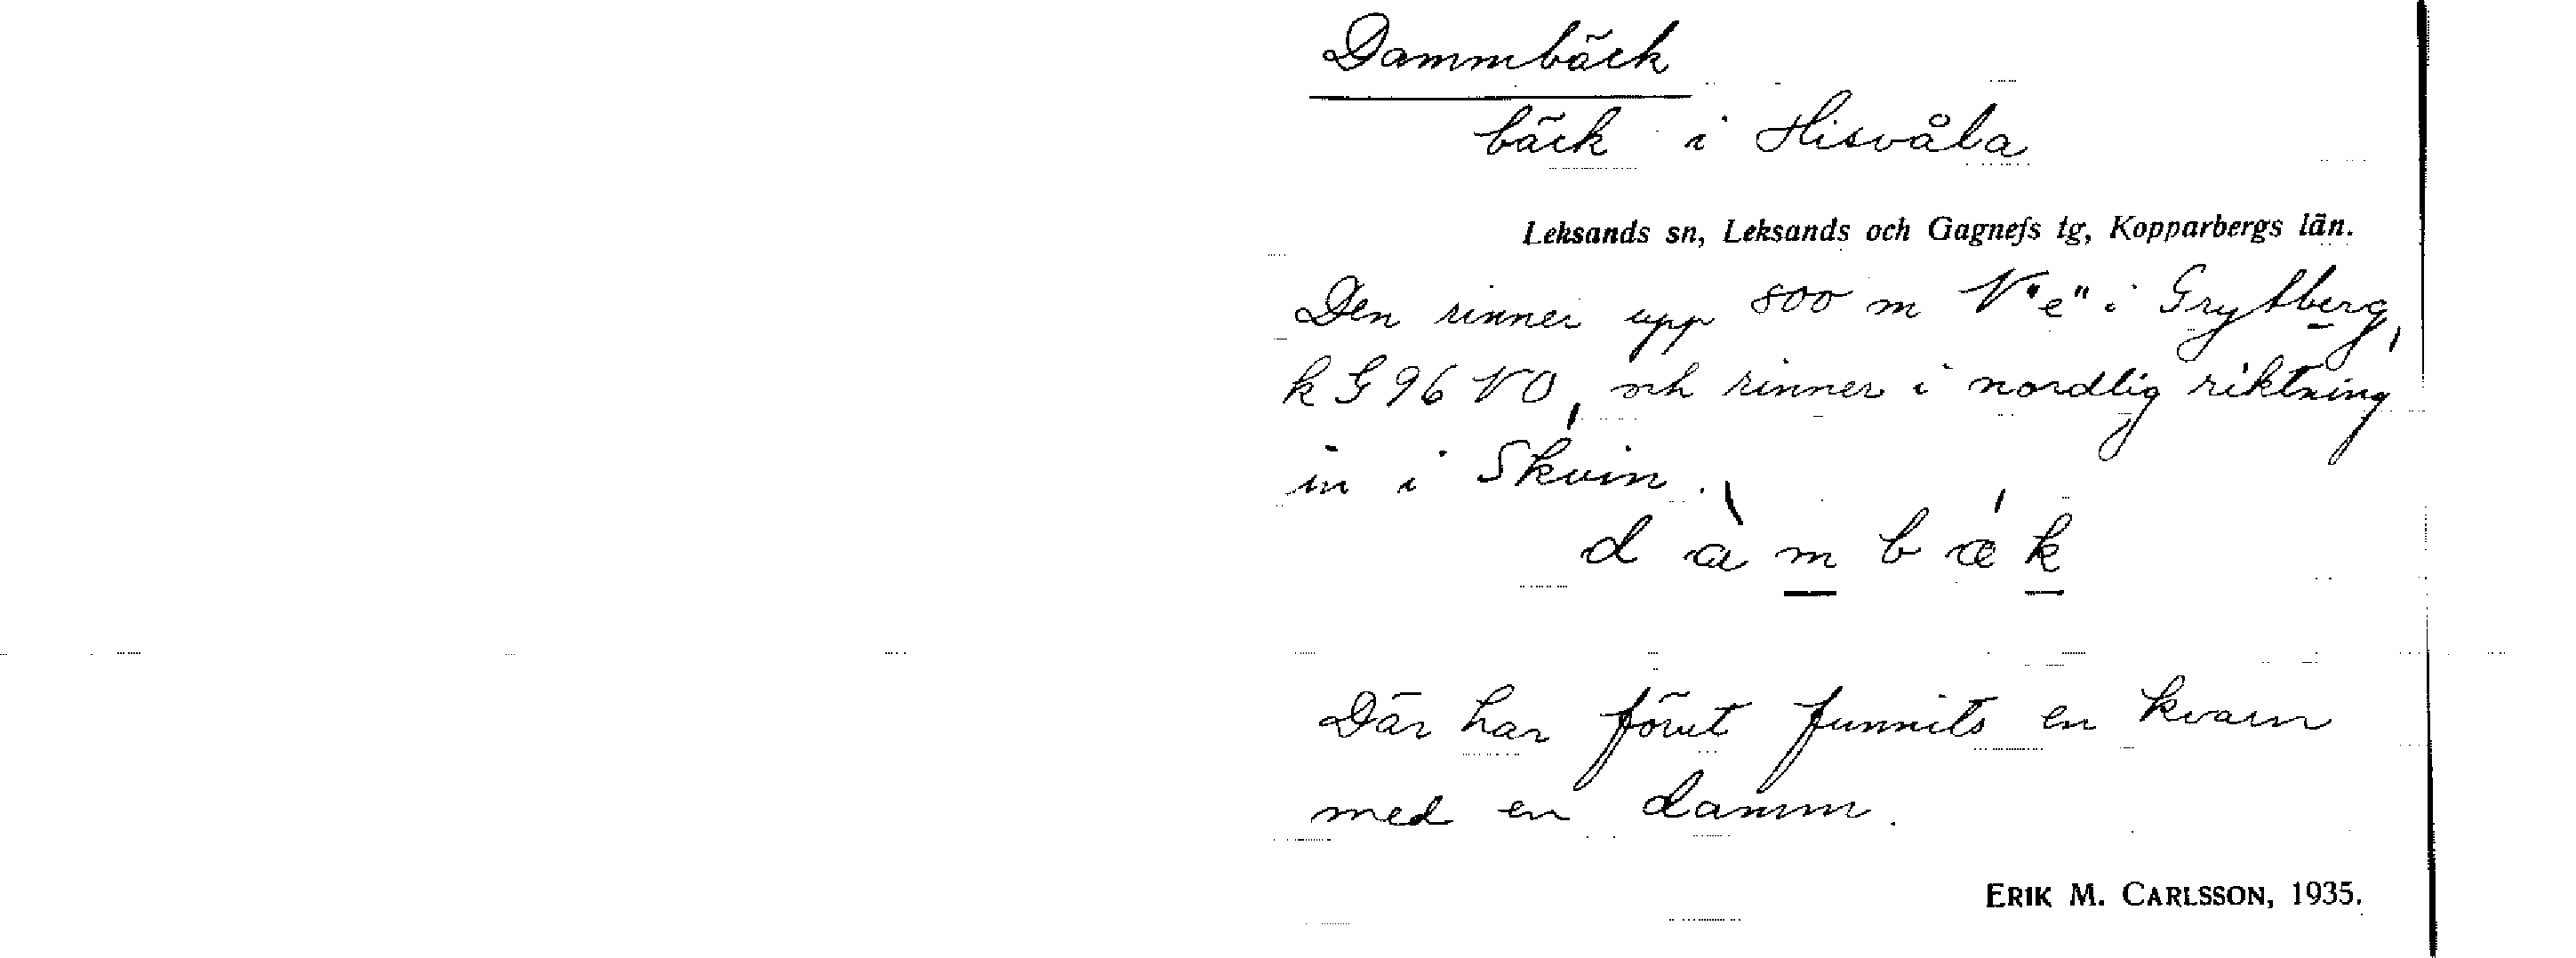 Dammbäck
bäck i Hisvåla
Leksands sn, Leksands och Gagnefs tg, Kopparbergs län.
Den rinner upp 800 m V "e" i Grytberg,
k G 96 VO, och rinner i nordlig riktning
in i Skvin.
d à m b æ k
Där har förut funnits en kvarn
med en damm.
ERIK M. CARLSSON, 1935.